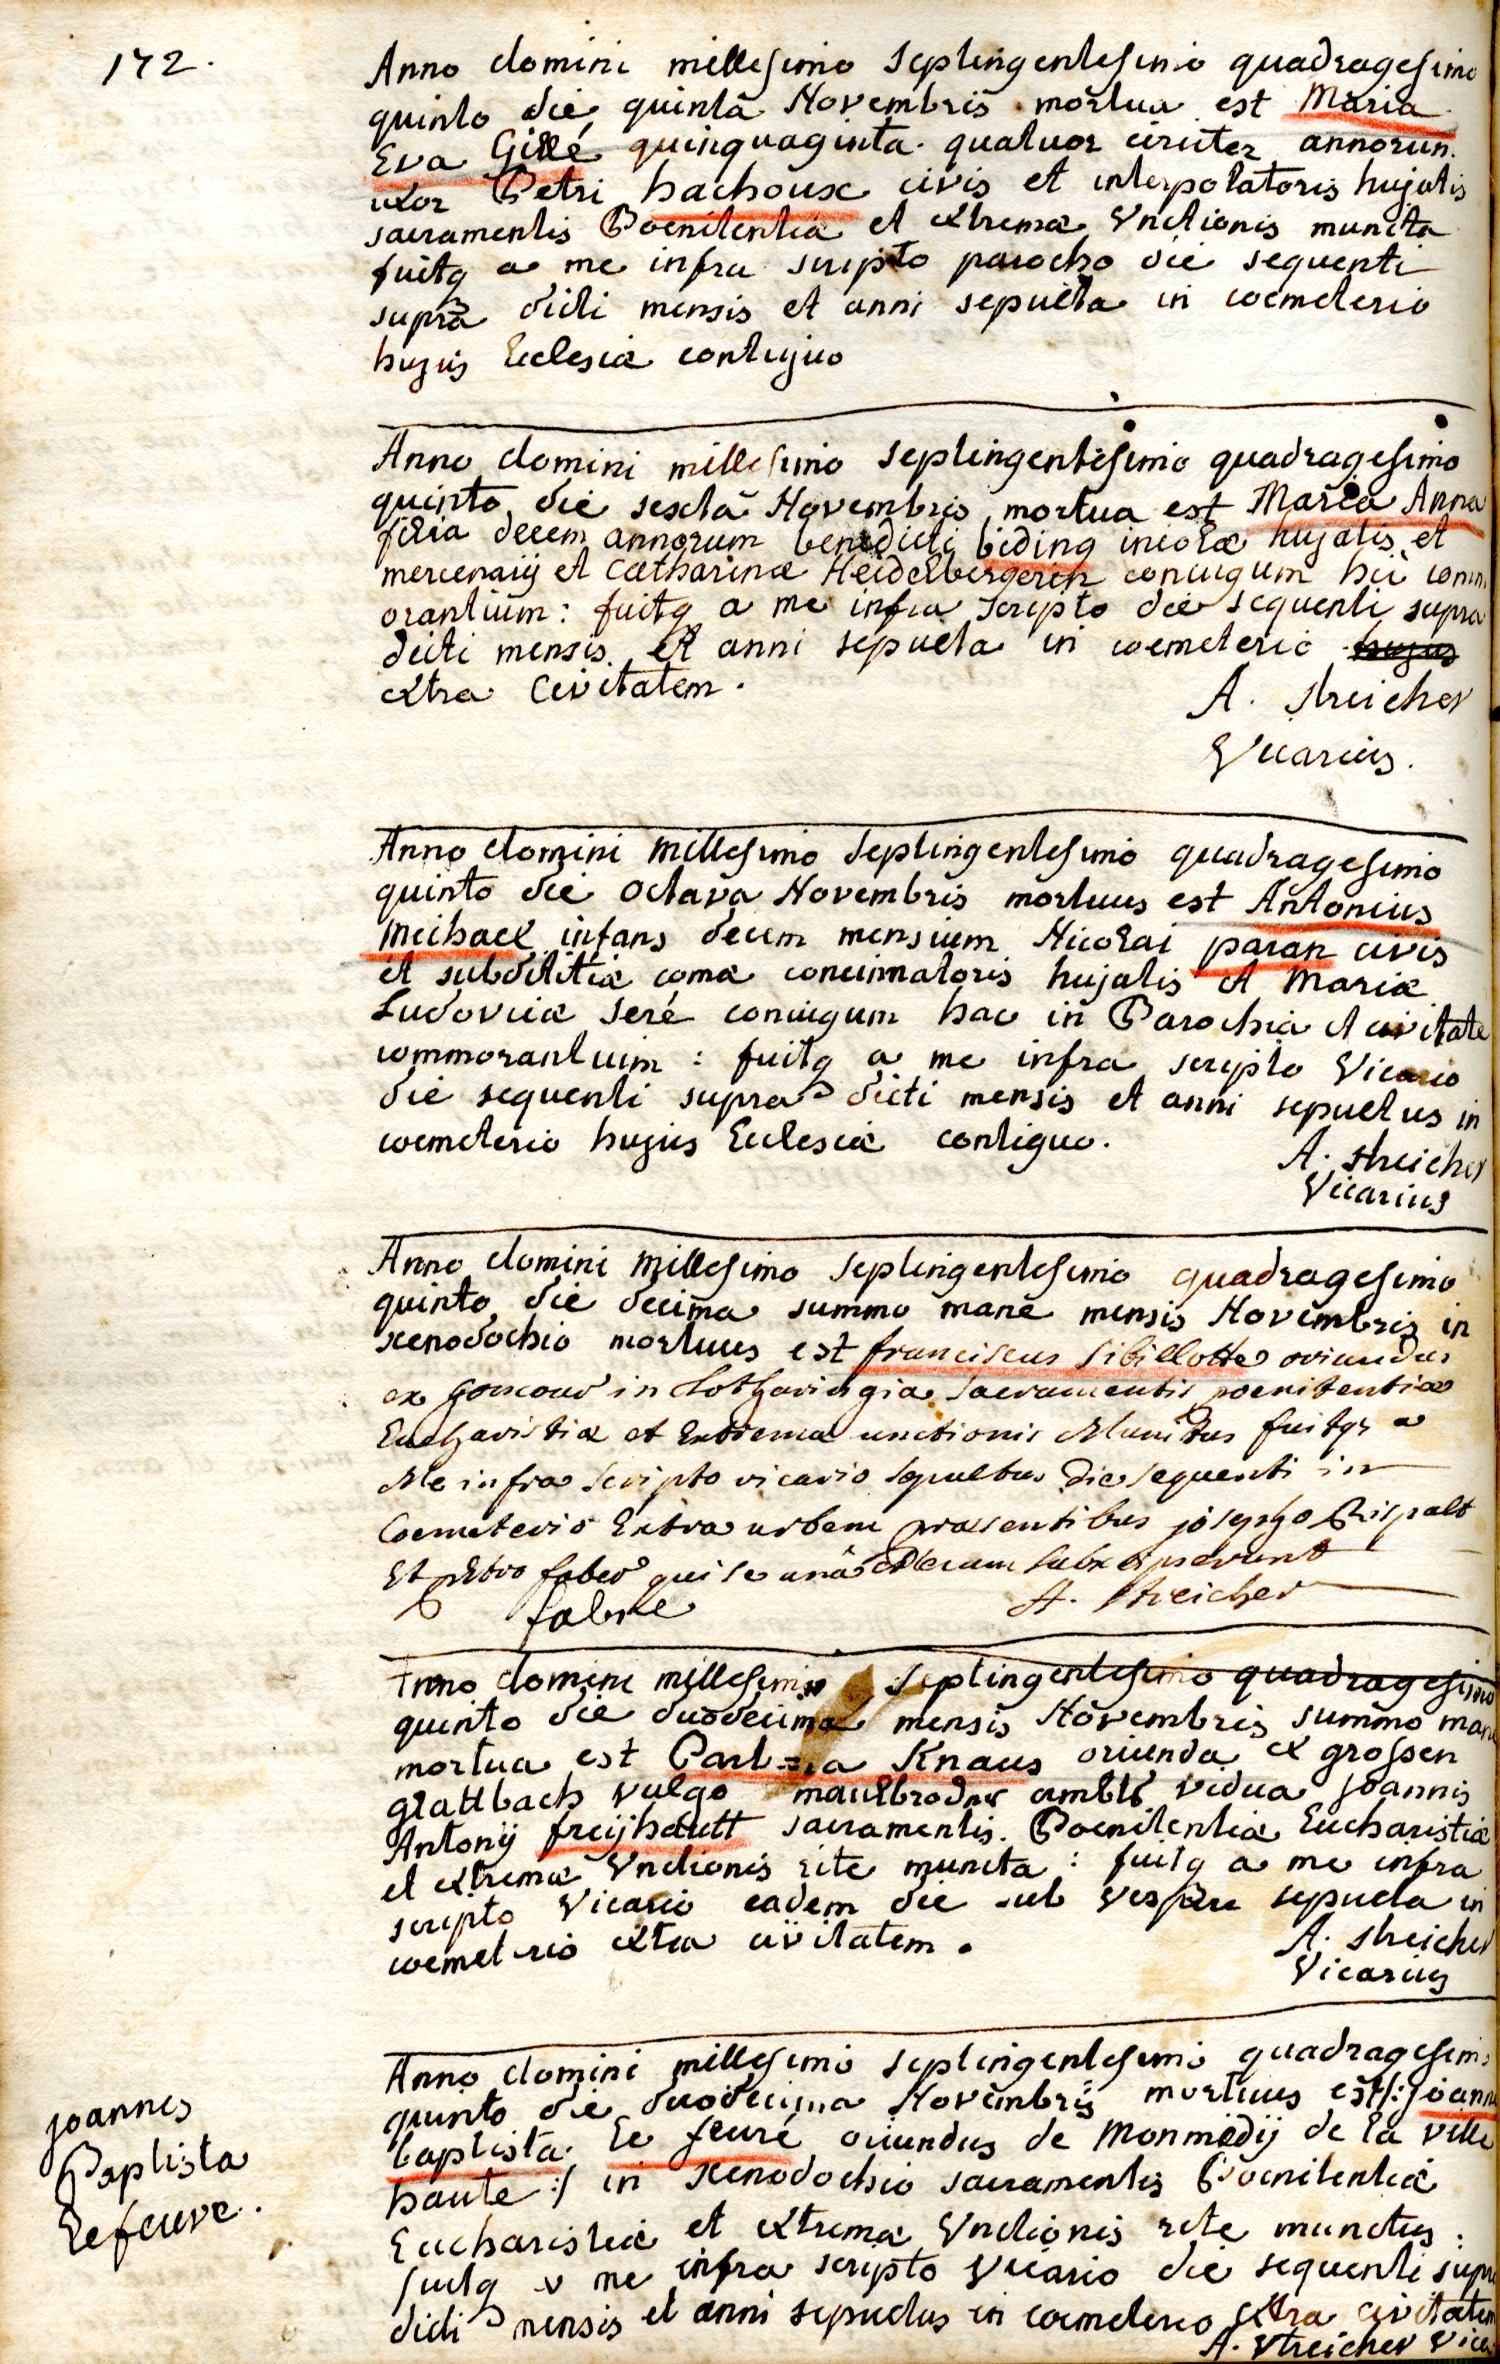 172.
Anno domini millesimo septingentesimo quadragesimo
quinto die quintâ Novembris mortua est Maria
Eva Gillé quinquaginta quatuor circiter annorum
uxor Petri hachoux civis et interpolatoris hujatis
sacramentis Poenitentiæ et extremæ Vnctionis munita
fuitq a me infra scripto parocho die sequenti
supra dicti mensis et anni sepulta in coemeterio
hujus Ecclesiæ contiguo
Anno domini millesimo septingentesimo quadragesimo
quinto die sextâ Novembris mortua est Maria Anna
filia decem annorum benedicti biding incolæ hujatis et
mercenarij et Catharinæ Heidelbergerin conjugum hic comm
orantium: fuitq a me infra scripto die sequenti supra
dicti mensis et anni sepulta in coemeterio hujus
extra Civitatem.
A. Streicher
Vicarius.
Anno domini millesimo septingentesimo quadragesimo
quinto die octava Novembris mortuus est Antonius
Michael infans decem mensium Nicolai paran civis
et subdititiæ comæ concinnatoris hujatis et Mariæ
Ludovicæ seré conjugum hac in Parochia et civitate
commorantium: fuitq a me infra scripto Vicario
die sequenti supra dicti mensis et anni sepultus in
coemeterio hujus Ecclesiæ contiguo.
A. Streicher
Vicarius
Anno domini millesimo septingentesimo quadragesimo
quinto die decima summo mane mensis Novembris in
xenodochio mortuus est franciscus Sibillotte oriundus
ex goncour in Lotharingia sacramentis poenitentiæ
Eucharistiæ et Extremæ unctionis Munitus fuitqe a
Me infra scripto vicario sepultus die sequenti in
Coemeterio Extra urbem præsentibus josepho Rispalt
Et petro faber qui se unâ Mecum subscripserunt
fabre
A. Streicher
Anno domini millesimo septingentesimo quadragesimo
quinto die duodecima mensis Novembris summo mane
mortua est Barbara Knaus oriunda ex grossen
glattbach vulgo maulbroner ambts vidua Joannis
Antonij freijhautt sacramentis Poenitentiæ Eucharistiæ
et extremæ Vnctionis rite munita: fuitq a me infra
scripto Vicario eadem die sub vespere sepulta in
coemeterio extra civitatem.
A. Streicher
Vicarius
Anno domini millesimo septingentesimo quadragesimo
quinto die duodecima Novembris mortuus est /:joannes
baptista le feuré oriundus de Monmidij de la ville
haute:/ in xenodochio sacramentis Poenitentiæ
Eucharistiæ et extremæ Vnctionis rite munitus:
fuitq a me infra scripto Vicario die sequenti supra
dicti mensis et anni sepultus in coemeterio extra civitatem
A. Streicher Vica
joannes
Baptista
Lefeuvre.